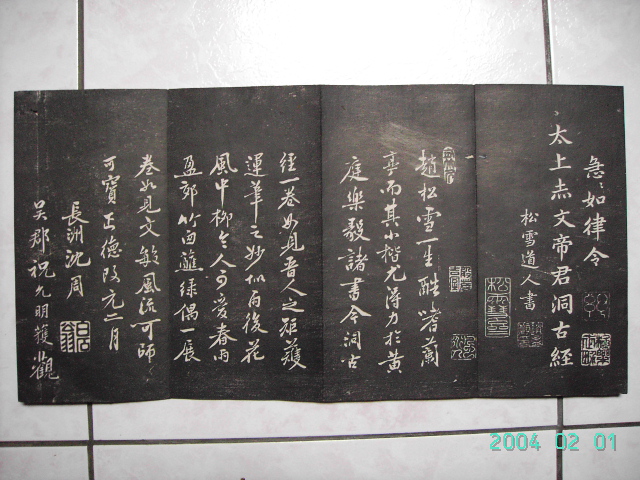 急急如律令
太上赤文帝君洞古經
松雪道人書
趙松雪一生酷嗜蘭
亭而其小楷尤得力於黃
庭樂毅諸書今洞古
經一卷如見晉人之矩矱
運筆之妙似雨後花
風中柳令人可愛春雨
盈郊竹西蘸綠偶一展
卷如見文敏風流可師
可寶正德改元二月
長洲沈周
吳郡祝允明獲觀
2004 02 01